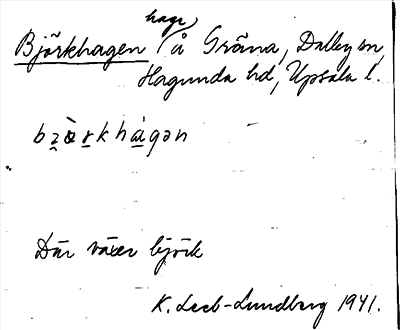 hage
Björkhagen / å Gräna, Dalby sn,
Hagunda hd, Upsala l.
Där växer björk
K. Leeb-Lundberg 1941.